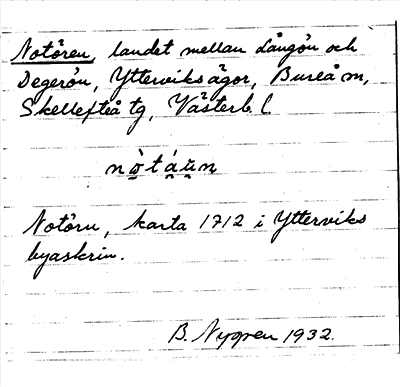 Notören, landet mellan Långön och
Degerön, Ytterviks ägor, Bureå sn,
Skellefteå tg, Västerb. l.
Notörn, karta 1712 i Ytterviks
byaskrin.
B. Nygren 1932.